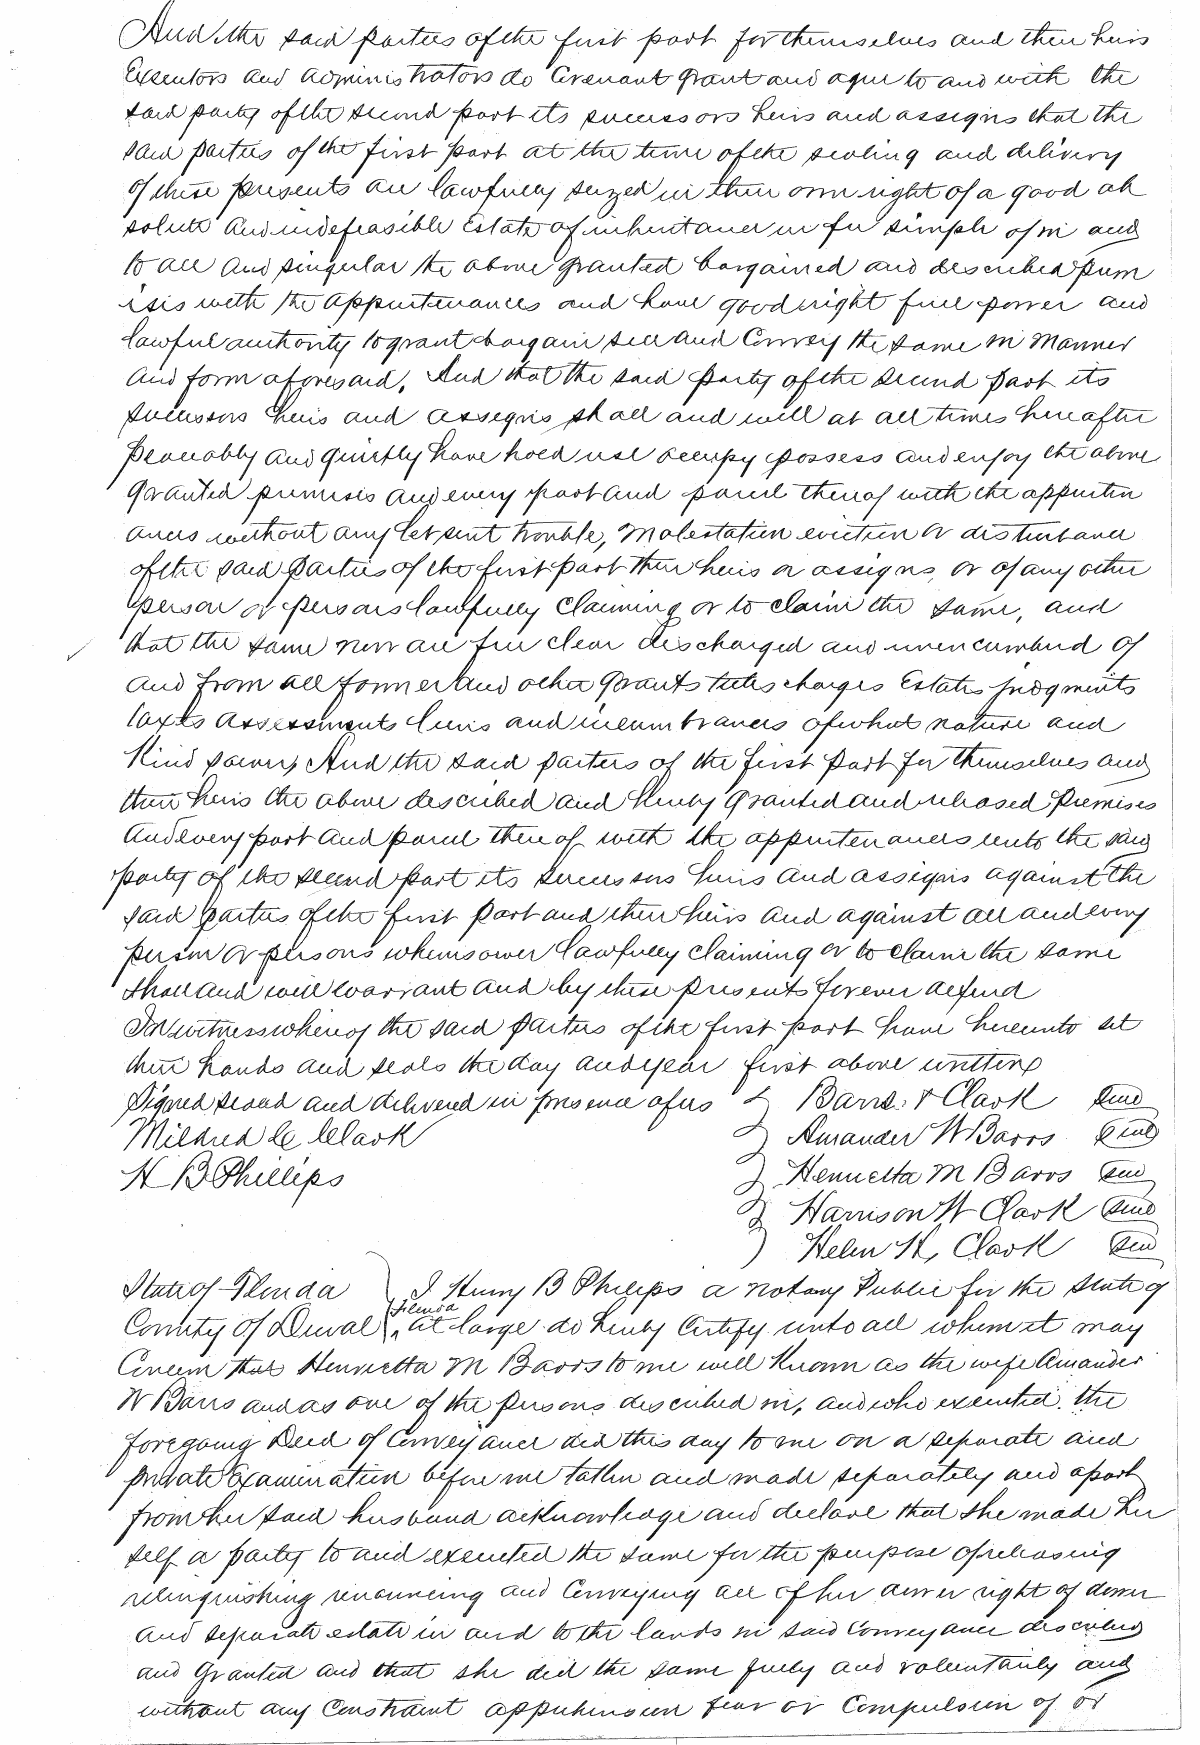 And the said parties of the first part for themselves and their heirs
Executors and administrators do Covenant grant and agree to and with the
said party of the second part its successors heirs and assigns that the
said parties of the first part at the time of the sealing and delivery
of these presents are lawfully seized in their own right of a good ab
solute and indefeasible Estate of inheritance in fee simple of in and
to all and singular the above granted bargained and described prem
isis with the appurtenances and have good right full power and
lawful authority to grant bargain sell and Convey the same in Manner
and form aforesaid. And that the said party of the second part its
successors heirs and assigns shall and will at all times hereafter
peaceably and quietly have hold use occupy possess and enjoy the above
granted premises and every part and parcel thereof with the appurten
ances without any let suit trouble, molestation eviction or disturbance
of the said parties of the first part their heirs or assigns, or of any other
person or persons lawfully claiming or to claim the same, and
that the same now are free clear discharged and unencumbered of
and from all former and other grants titles charges Estates judgments
taxes assessments liens and incumbrances of what nature and
Kind soever, And the said parties of the first part for themselves and
their heirs the above described and hereby granted and released premises
and every part and parcel thereof with the appurtenances unto the said
party of the second part its successors heirs and assigns against the
said parties of the first part and their heirs and against all and every
person or persons whomsoever lawfully claiming or to claim the same
shall and will warrant and by these presents forever defend
In witness whereof the said parties of the first part have hereunto set
their hands and seals the day and year first above written
Signed sealed and delivered in presence of us } Barrs & Clark Seal
Mildred C Clark } Amander W Barrs Seal
H B Phillips } Henrietta M Barrs Seal
} Harrison W Clark Seal
) Helen H, Clark Seal
State of Florida } I Henry B Philips a notary Public for the State of
County of Duval } Florida at large do hereby Certify unto all whom it may
Concern that Henrietta M Barrs to me well Known as the wife Amander
W Barrs and as one of the persons described in, and who executed the
foregoing Deed of Conveyance did this day to me on a separate and
private examination before me taken and made separately and apart
from her said husband acknowledge and declare that she made her
self a party to and executed the same for the purpose of releasing
relinquishing renouncing and Conveying all of her dower right of dower
and separate estate in and to the lands in said Conveyance described
and Granted and that she did the same freely and voluntarily and
without any Constraint apprehension fear or Compulsion of or